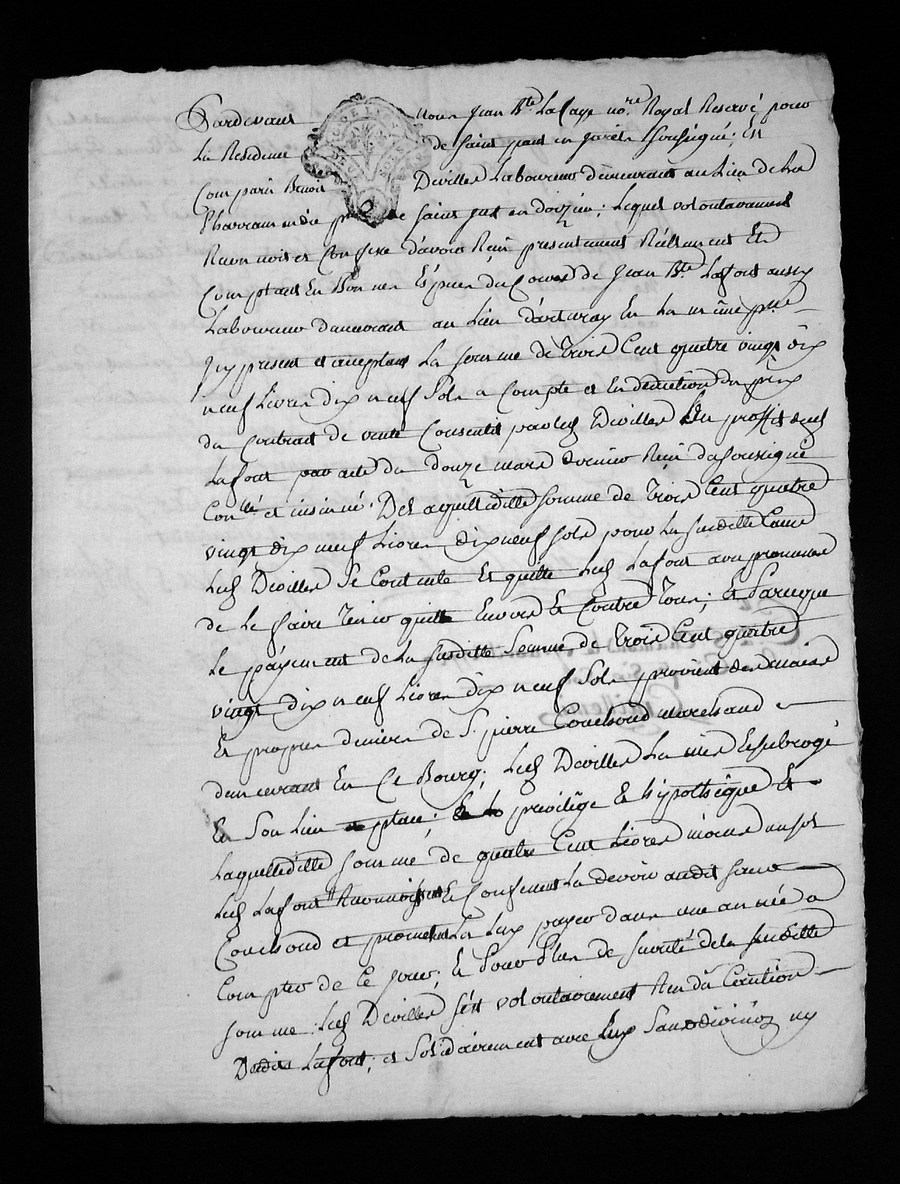 Pardevant Nous Jean Bte Lacaye nore Royal Reservé pour
La Residence de saint paul en Jarêts soussigné; En
Comparû Benoit Deviller Laboureur demeurant au Lieu de La
saint Just en doizieu; Lequel volontairement
Reconnoit et Confesse d'avoir Reçû presentement Réellement Et
Comptant En Bonnes Espèces du Cours de Jean Bte Lafont aussy
Laboureur demeurant au Lieu En La même psse
Jcy present et acceptant La somme de Trois Cent quatre vingt dix
neuf Livres dix neuf Sols a Compte et En deduction du prix
du Contrait de vente Consentit par led Deviller Au proffit dud
Lafont par acte du douze mars dernier Reçû du soussigné
Conllé et insinué. De Laquelleditte somme de Trois Cent quatre
vingt dix neuf Livres dix neuf sols pour La susditte Cause
Led Deviller Se Contente Et quitte Led Lafont avec promesse
de Le faire Tenir quitte Envers Et Contre Tous; Et Parceque
Le payement de La susditte Somme de Trois Cent quatre
vingt dix neuf Livres dix neuf Sols provient des mains
Et propres deniers de Sr pierre Couchoud marchand
demeurant En Ce Bourg; Led Deviller La mis Et subrogé
En Son Lieu place; privilége Et hypothéque Et
Laquelleditte somme de quatre Cent Livres moins un sol
Led Lafont Reconnoissant Et Confessant La devoir audit sieur
Couchoud et promet La Luy payer dans une année a
Compter de Ce jour; Et Pour Plus de sureté de la susditte
somme Led Deviller s'est volontairement Rendû Caution
Dudit Lafont; et Solidairement avec Luy Sans division ny